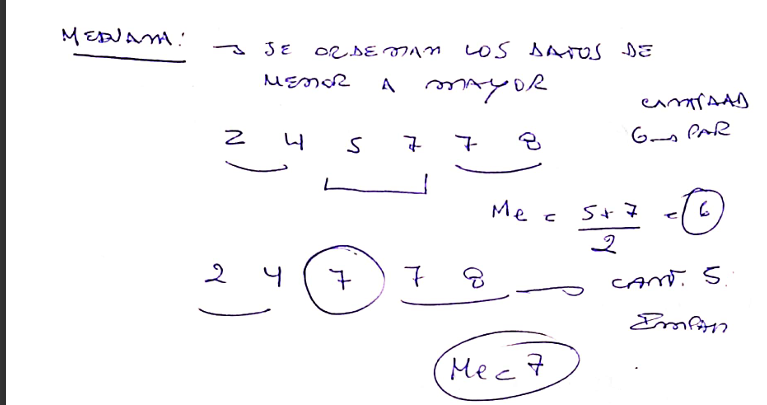 MEDIANA: → SE ORDENAN LOS DATOS DE
MENOR A MAYOR
CANTIDAD
6 → PAR
2 4 5 7 7 8
Me = 5+7/2 = 6
2 4 7 7 8 → CANT. 5.
IMPAR
Me = 7